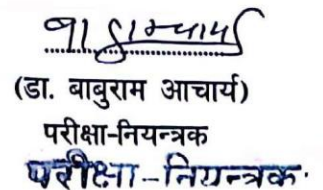 (डा. बाबुराम आचार्य)
परीक्षा-नियन्त्रक
परीक्षा-नियन्त्रक.